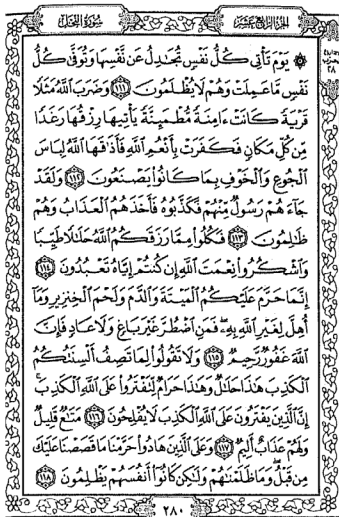 الجزء الرابع عشر
سُورَةُ النَّحْلِ
۞ يَوْمَ تَأْتِى كُلُّ نَفْسٍ تُجَٰدِلُ عَن نَّفْسِهَا وَتُوَفَّىٰ كُلُّ
نَفْسٍ مَّا عَمِلَتْ وَهُمْ لَا يُظْلَمُونَ ۝١١١ وَضَرَبَ ٱللَّهُ مَثَلًا
قَرْيَةً كَانَتْ ءَامِنَةً مُّطْمَئِنَّةً يَأْتِيهَا رِزْقُهَا رَغَدًا
مِّن كُلِّ مَكَانٍ فَكَفَرَتْ بِأَنْعُمِ ٱللَّهِ فَأَذَٰقَهَا ٱللَّهُ لِبَاسَ
ٱلْجُوعِ وَٱلْخَوْفِ بِمَا كَانُوا۟ يَصْنَعُونَ ۝١١٢ وَلَقَدْ
جَآءَهُمْ رَسُولٌ مِّنْهُمْ فَكَذَّبُوهُ فَأَخَذَهُمُ ٱلْعَذَابُ وَهُمْ
ظَٰلِمُونَ ۝١١٣ فَكُلُوا۟ مِمَّا رَزَقَكُمُ ٱللَّهُ حَلَٰلًا طَيِّبًا
وَٱشْكُرُوا۟ نِعْمَتَ ٱللَّهِ إِن كُنتُمْ إِيَّاهُ تَعْبُدُونَ ۝١١٤
إِنَّمَا حَرَّمَ عَلَيْكُمُ ٱلْمَيْتَةَ وَٱلدَّمَ وَلَحْمَ ٱلْخِنزِيرِ وَمَآ
أُهِلَّ لِغَيْرِ ٱللَّهِ بِهِۦ ۖ فَمَنِ ٱضْطُرَّ غَيْرَ بَاغٍ وَلَا عَادٍ فَإِنَّ
ٱللَّهَ غَفُورٌ رَّحِيمٌ ۝١١٥ وَلَا تَقُولُوا۟ لِمَا تَصِفُ أَلْسِنَتُكُمُ
ٱلْكَذِبَ هَٰذَا حَلَٰلٌ وَهَٰذَا حَرَامٌ لِّتَفْتَرُوا۟ عَلَى ٱللَّهِ ٱلْكَذِبَ ۚ
إِنَّ ٱلَّذِينَ يَفْتَرُونَ عَلَى ٱللَّهِ ٱلْكَذِبَ لَا يُفْلِحُونَ ۝١١٦ مَتَٰعٌ قَلِيلٌ
وَلَهُمْ عَذَابٌ أَلِيمٌ ۝١١٧ وَعَلَى ٱلَّذِينَ هَادُوا۟ حَرَّمْنَا مَا قَصَصْنَا عَلَيْكَ
مِن قَبْلُ ۖ وَمَا ظَلَمْنَٰهُمْ وَلَٰكِن كَانُوٓا۟ أَنفُسَهُمْ يَظْلِمُونَ ۝١١٨
٢٨٠